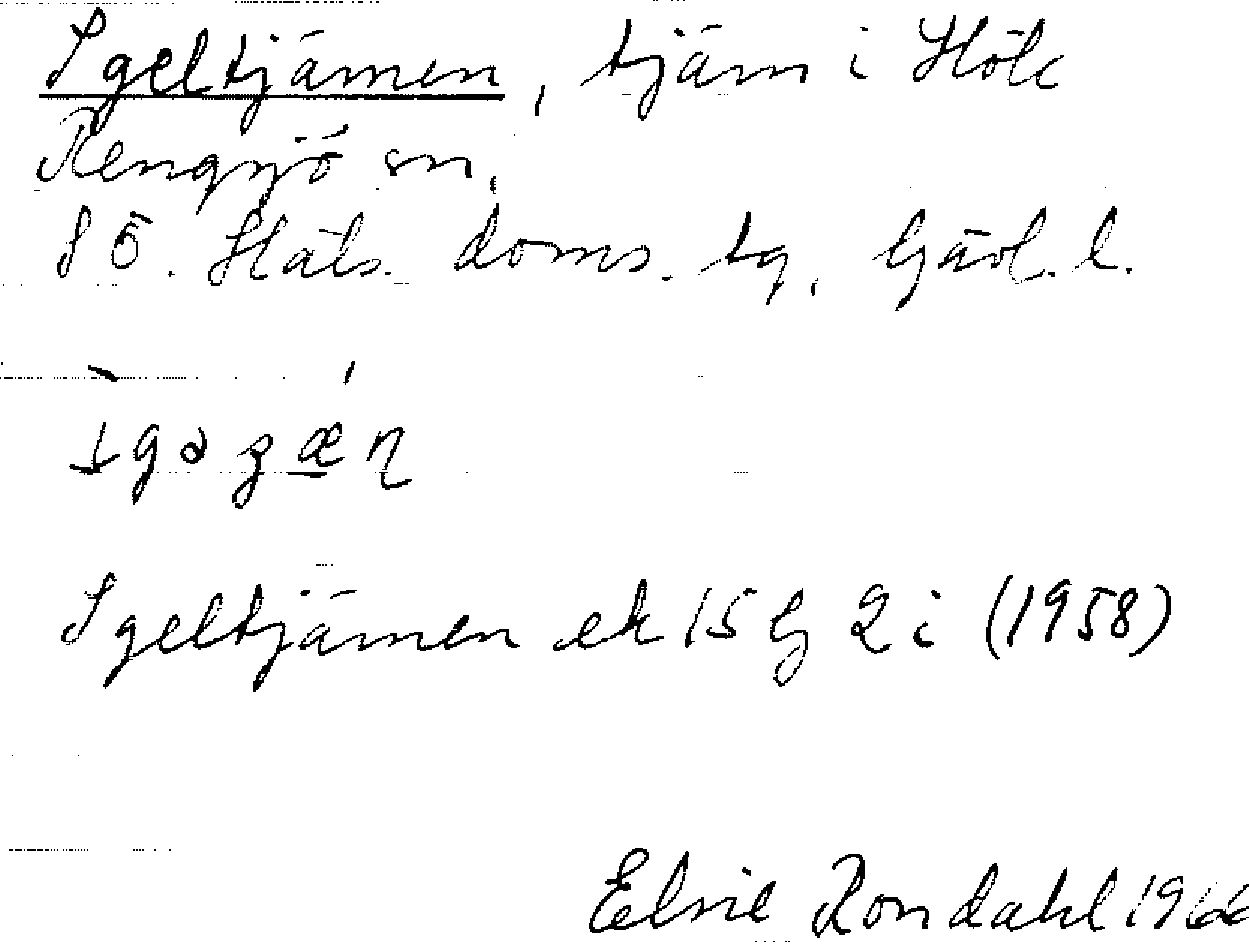 Igeltjärnen, tjärn i Höle
Rengsjö sn.
SÖ. Häls. doms. tg, Gävl. l.
Igeltjärnen ek 15 G 2 i (1958)
Elsie Rondahl 1966